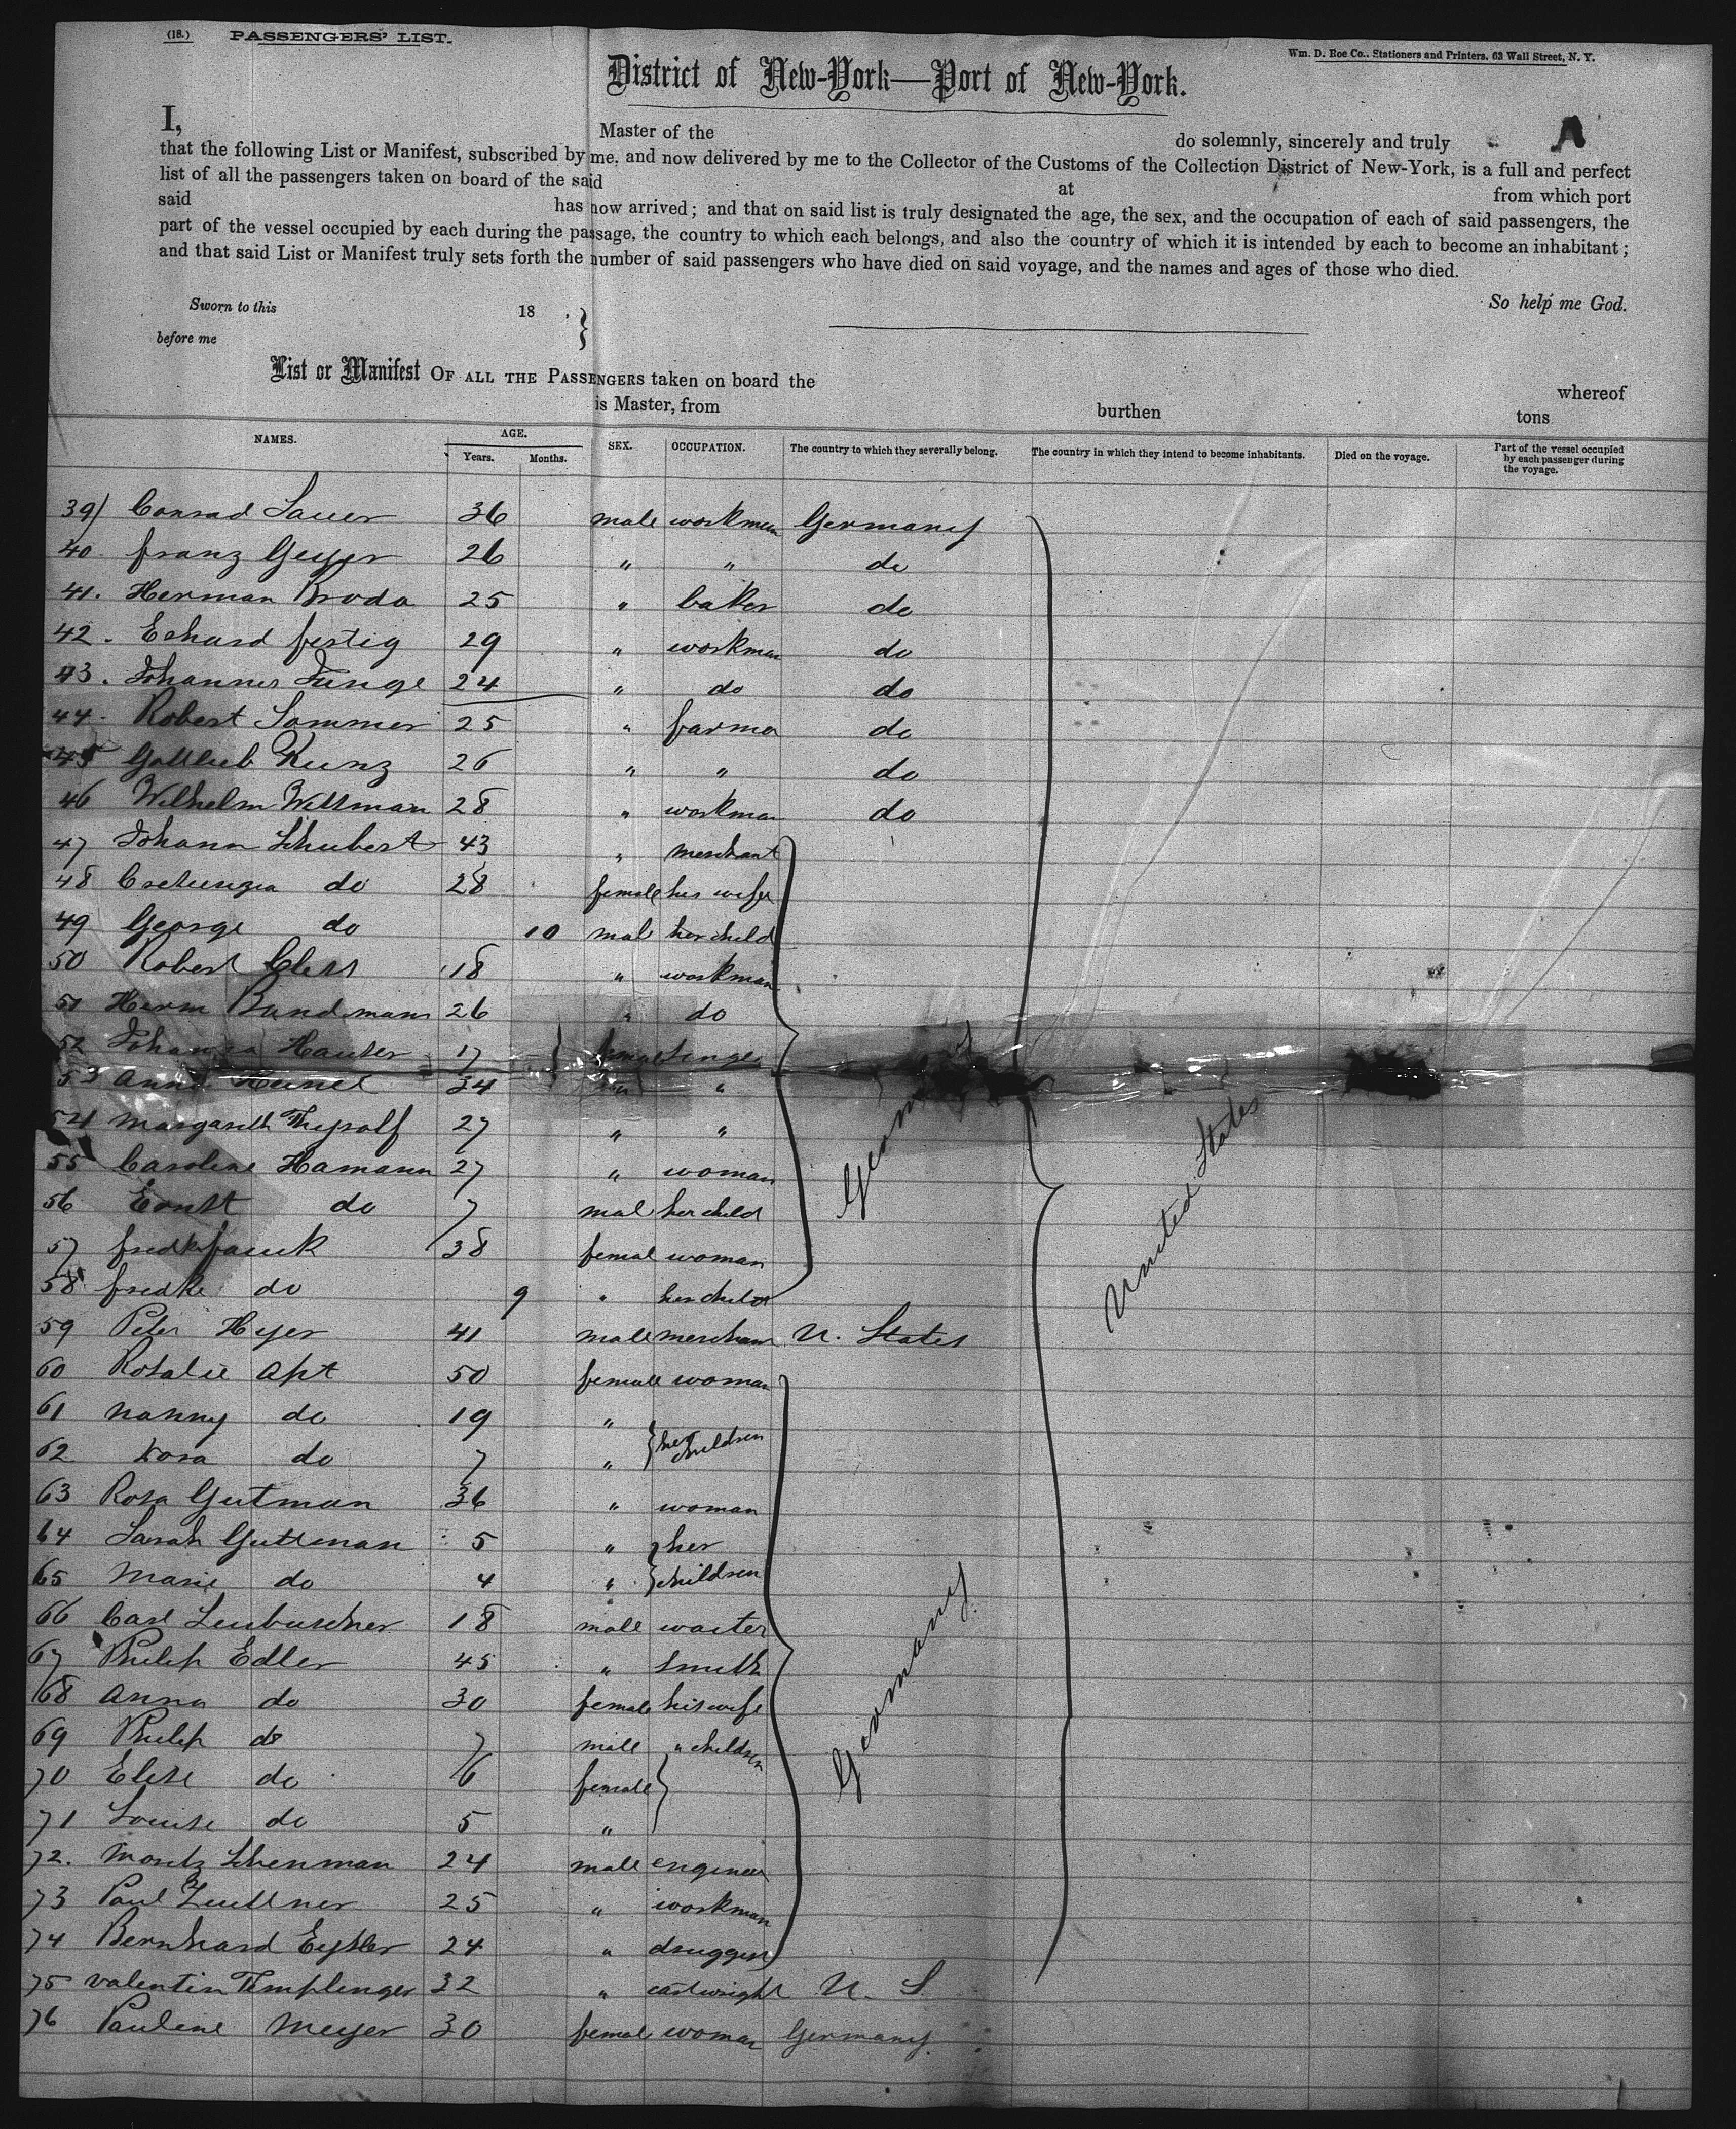 (18.) PASSENGERS' LIST.
Wm. D. Roe Co., Stationers and Printers, 63 Wall Street, N. Y.
District of New-York—Port of New-York.
I, Master of the do solemnly, sincerely and truly
that the following List or Manifest, subscribed by me, and now delivered by me to the Collector of the Customs of the Collection District of New-York, is a full and perfect
list of all the passengers taken on board of the said at from which port
said has now arrived; and that on said list is truly designated the age, the sex, and the occupation of each of said passengers, the
part of the vessel occupied by each during the passage, the country to which each belongs, and also the country of which it is intended by each to become an inhabitant;
and that said List or Manifest truly sets forth the number of said passengers who have died on said voyage, and the names and ages of those who died.
So help me God.
Sworn to this 18 .
before me
List or Manifest OF ALL THE PASSENGERS taken on board the whereof
is Master, from burthen tons
NAMES. AGE. Years. Months. SEX. OCCUPATION. The country to which they severally belong. The country in which they intend to become inhabitants. Died on the voyage. Part of the vessel occupied by each passenger during the voyage.
39) Conrad Sauer 36 male workman Germany
40. Franz Geyer 26 " " do
41. Herman Broda 25 " baker do
42. Erhard Fertig 29 " workman do
43. Johannes Junge 24 " do do
44. Robert Sommer 25 " farmer do
45 Gottlieb Kunz 26 " " do
46 Wilhelm Wittman 28 " workman do
47 Johann Schubert 43 " merchant
48 do 28 female his wife
49 George do 10 mal her child
50 Robert 18 " workman
51 Herm Bandmann 26 " do
52 Johanna Hauser 17
53 Anna 34 " "
54 Margareth 27 " "
55 Caroline Hamann 27 " woman
56 Ernst do 7 mal her child
57 38 femal woman
58 Fredke do 9 " her child
Germany
United States
59 Peter Heyer 41 male merchant U. States
60 Rosalie Apt 50 female woman
61 Nanny do 19 " her children
62 do 7 "
63 Rosa Gutman 36 " woman
64 Sarah Guttman 5 " her
65 Marie do 4 " children
66 Carl Leubuscher 18 male waiter
67 Philip Edler 45 " smith
68 Anna do 30 female his wife
69 Philip do 7 male " children
70 Elise do 6 female
71 Louise do 5 "
Germany
72. Moritz Schenman 24 male engineer
73 Paul Zeuttner 25 " workman
74 Bernhard Eyssler 24 " druggist
75 Valentin Templinger 32 " cartwright U. S.
76 Pauline Meyer 30 femal woman Germany